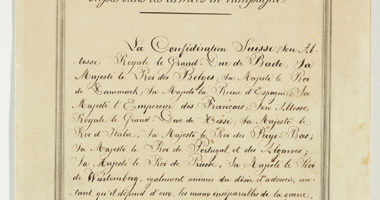 blessés dans les armées en campagne.
La Confédération Suisse; Son Al-
tesse Royale le Grand-Duc de Bade; Sa
Majesté le Roi des Belges; Sa Majesté le Roi
de Danemark; Sa Majesté la Reine d'Espagne; Sa
Majesté l'Empereur des Français; Son Altesse
Royale le Grand Duc de Hesse; Sa Majesté le
Roi d'Italie; Sa Majesté le Roi des Pays-Bas;
Sa Majesté le Roi de Portugal et des Algarves;
Sa Majesté le Roi de Prusse; Sa Majesté le Roi
de Würtemberg, également animés du désir d'adoucir, au-
tant qu'il dépend d'eux, les maux inséparables de la guerre,